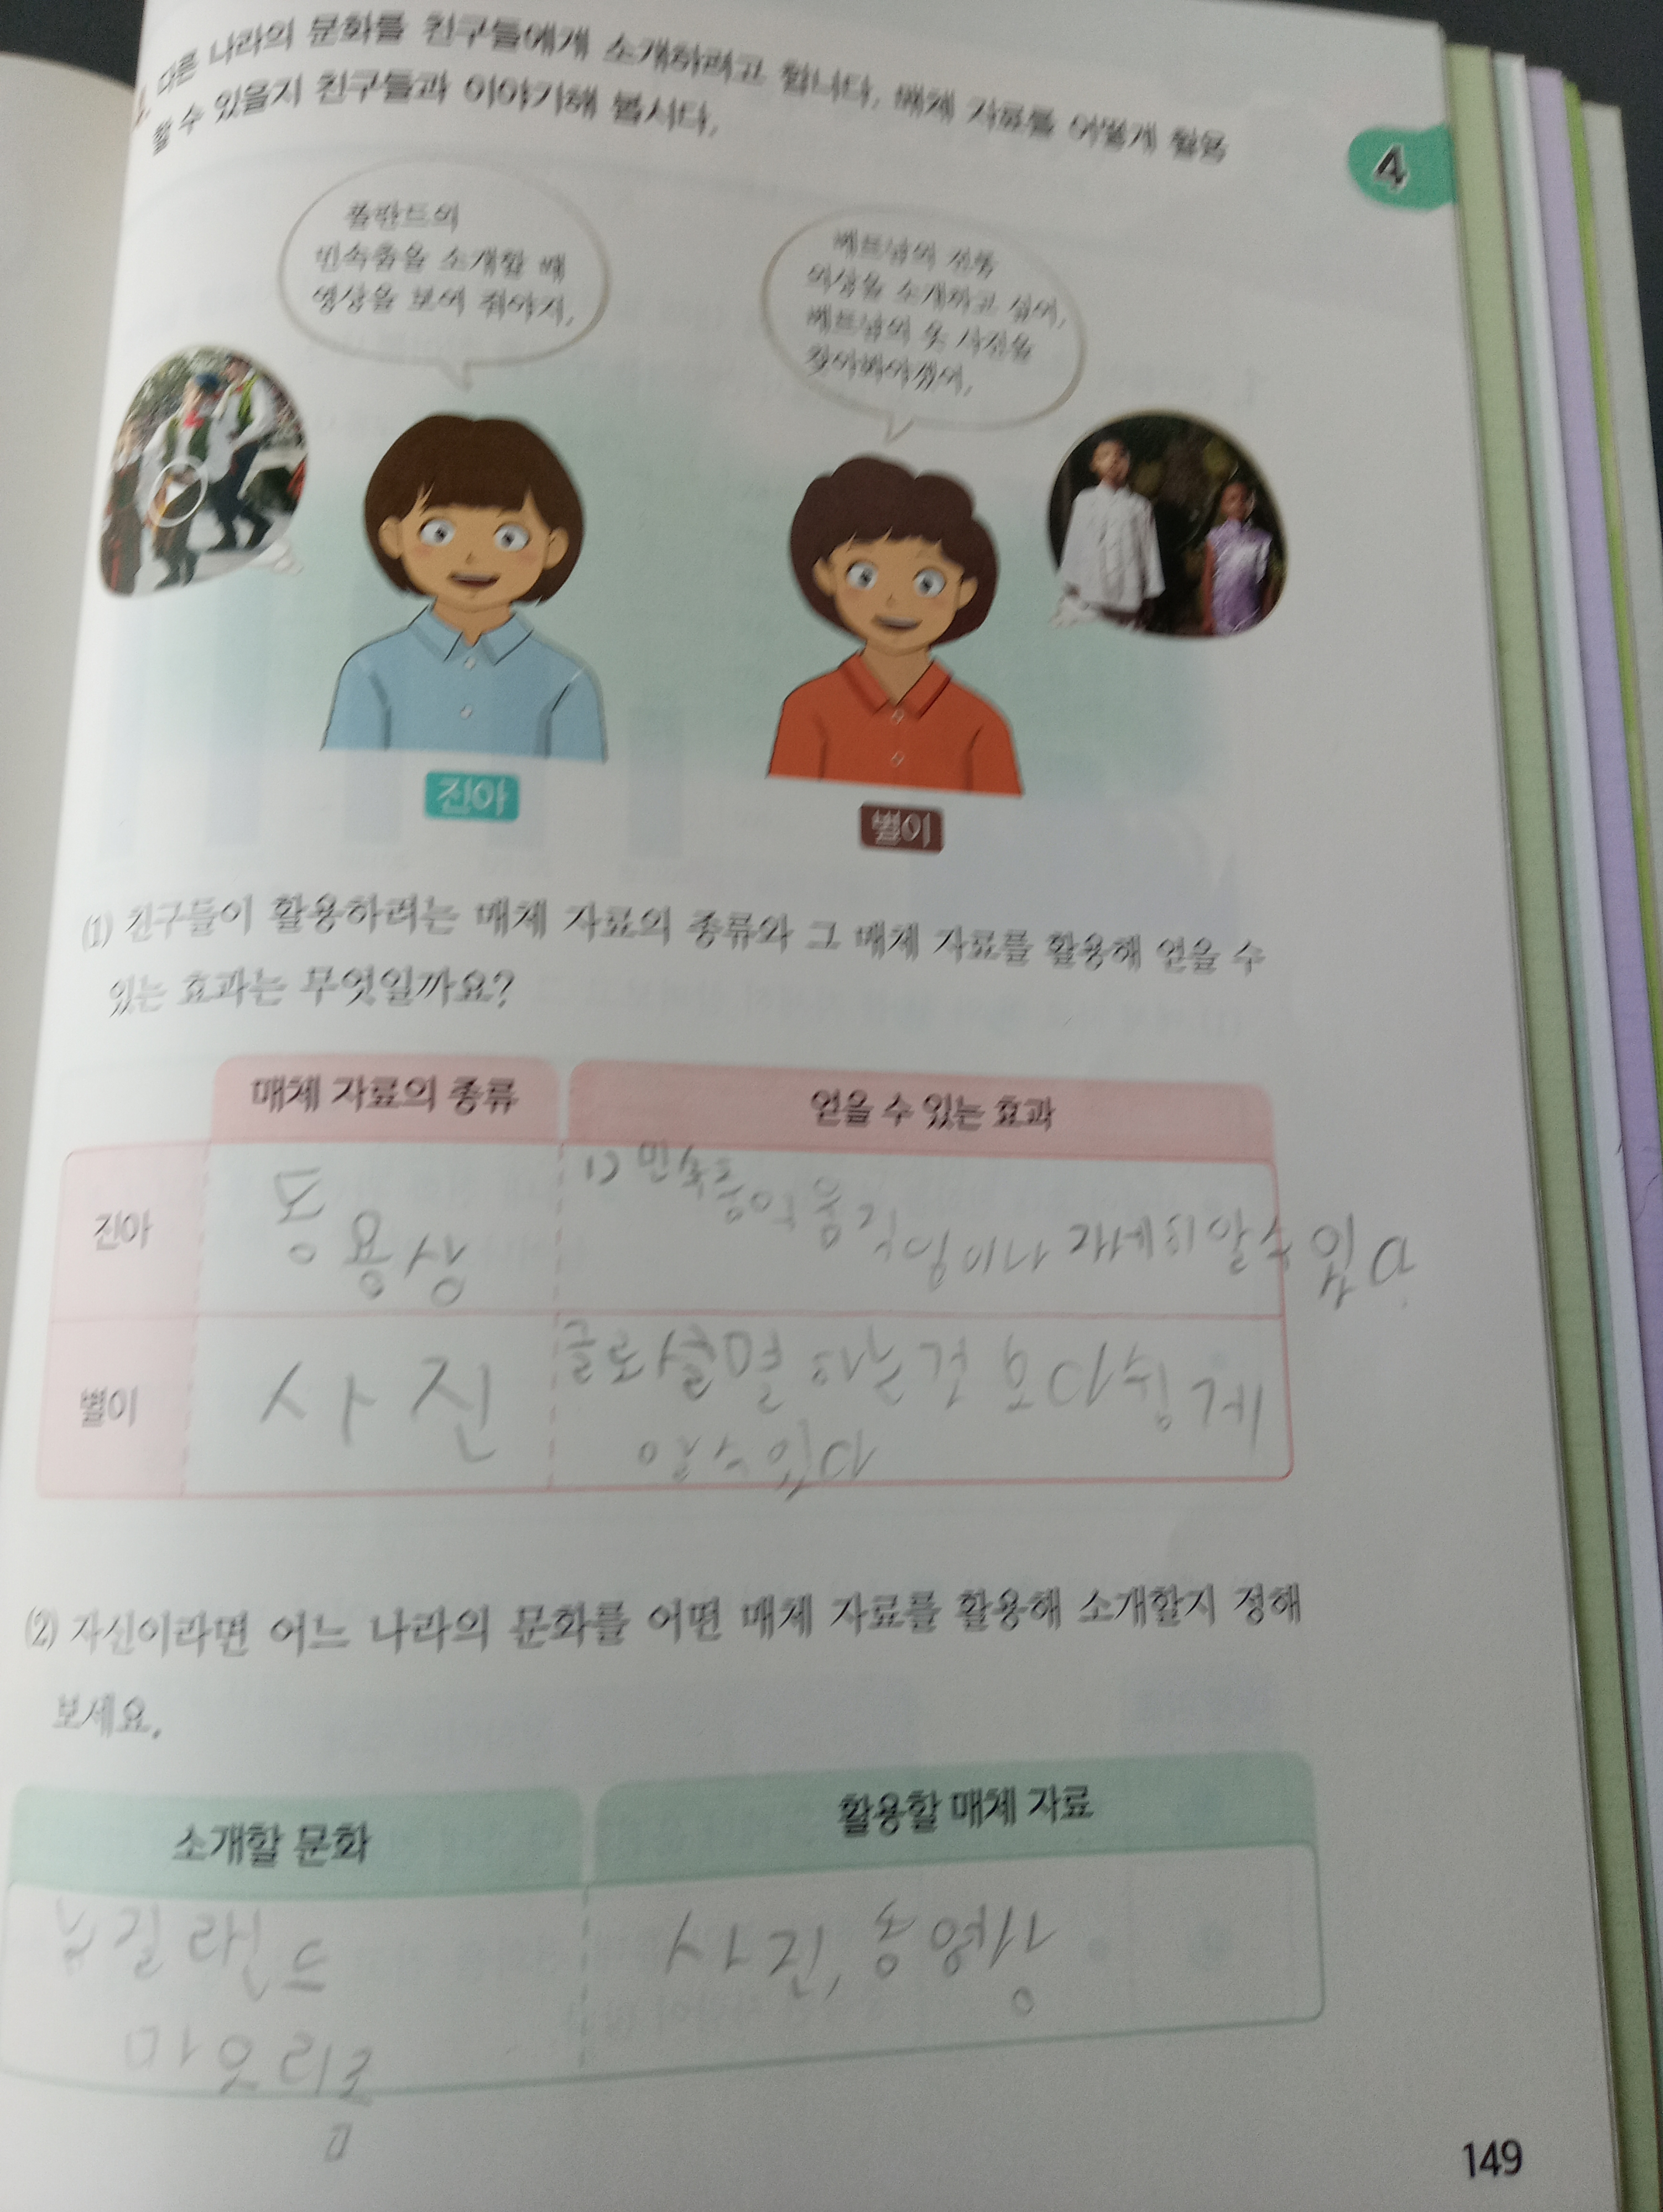 다른 나라의 문화를 친구들에게 소개하려고 합니다. 매체 자료를 어떻게 활용
할 수 있을지 친구들과 이야기해 봅시다.
4
폴란드의
민속춤을 소개할 때
영상을 보여 줘야지.
베트남의 전통
의상을 소개하고 싶어.
베트남의 옷 사진을
찾아봐야겠어.
진아
별이
(1) 친구들이 활용하려는 매체 자료의 종류와 그 매체 자료를 활용해 얻을 수
있는 효과는 무엇일까요?
매체 자료의 종류
얻을 수 있는 효과
진아
민속춤의 움직임이나 자세히 알 수 있다.
별이
사진
글로 설명하는 것 보다 쉽게
알 수 있다
(2) 자신이라면 어느 나라의 문화를 어떤 매체 자료를 활용해 소개할지 정해
보세요.
소개할 문화
활용할 매체 자료
뉴질랜드
사진, 동영상
마오리
149